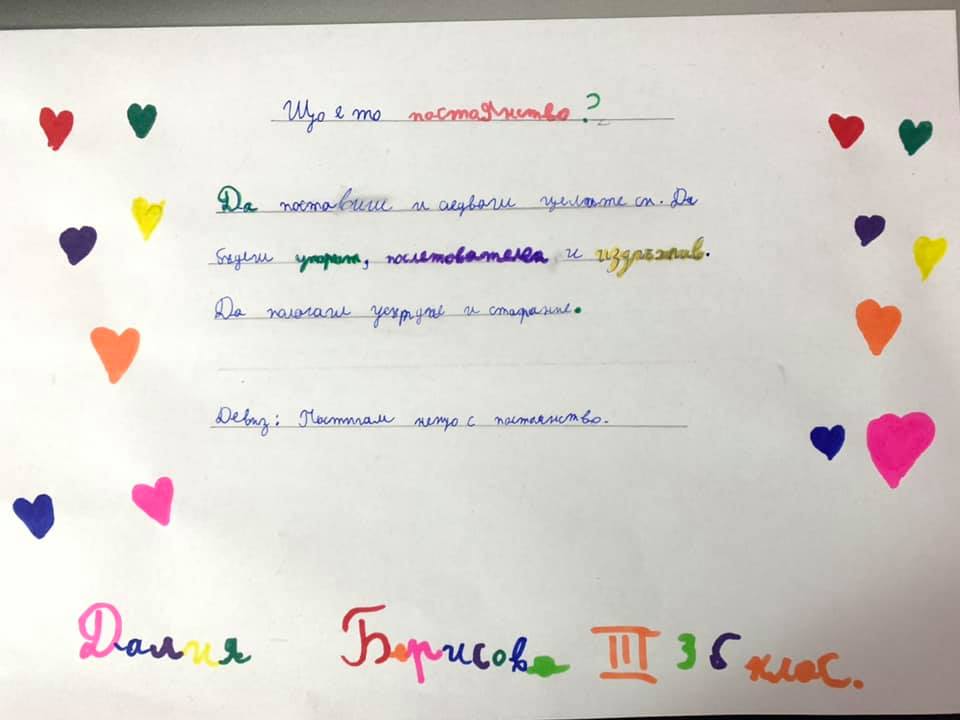 Що е то постоянство?
Да поставиш и следваш целите си. Да
бъдеш упорит, последователен и издръжлив.
Да полагаш усърдие и старание.
Девиз: Постигам нещо с постоянство.
Далия Борисова III З б клас.